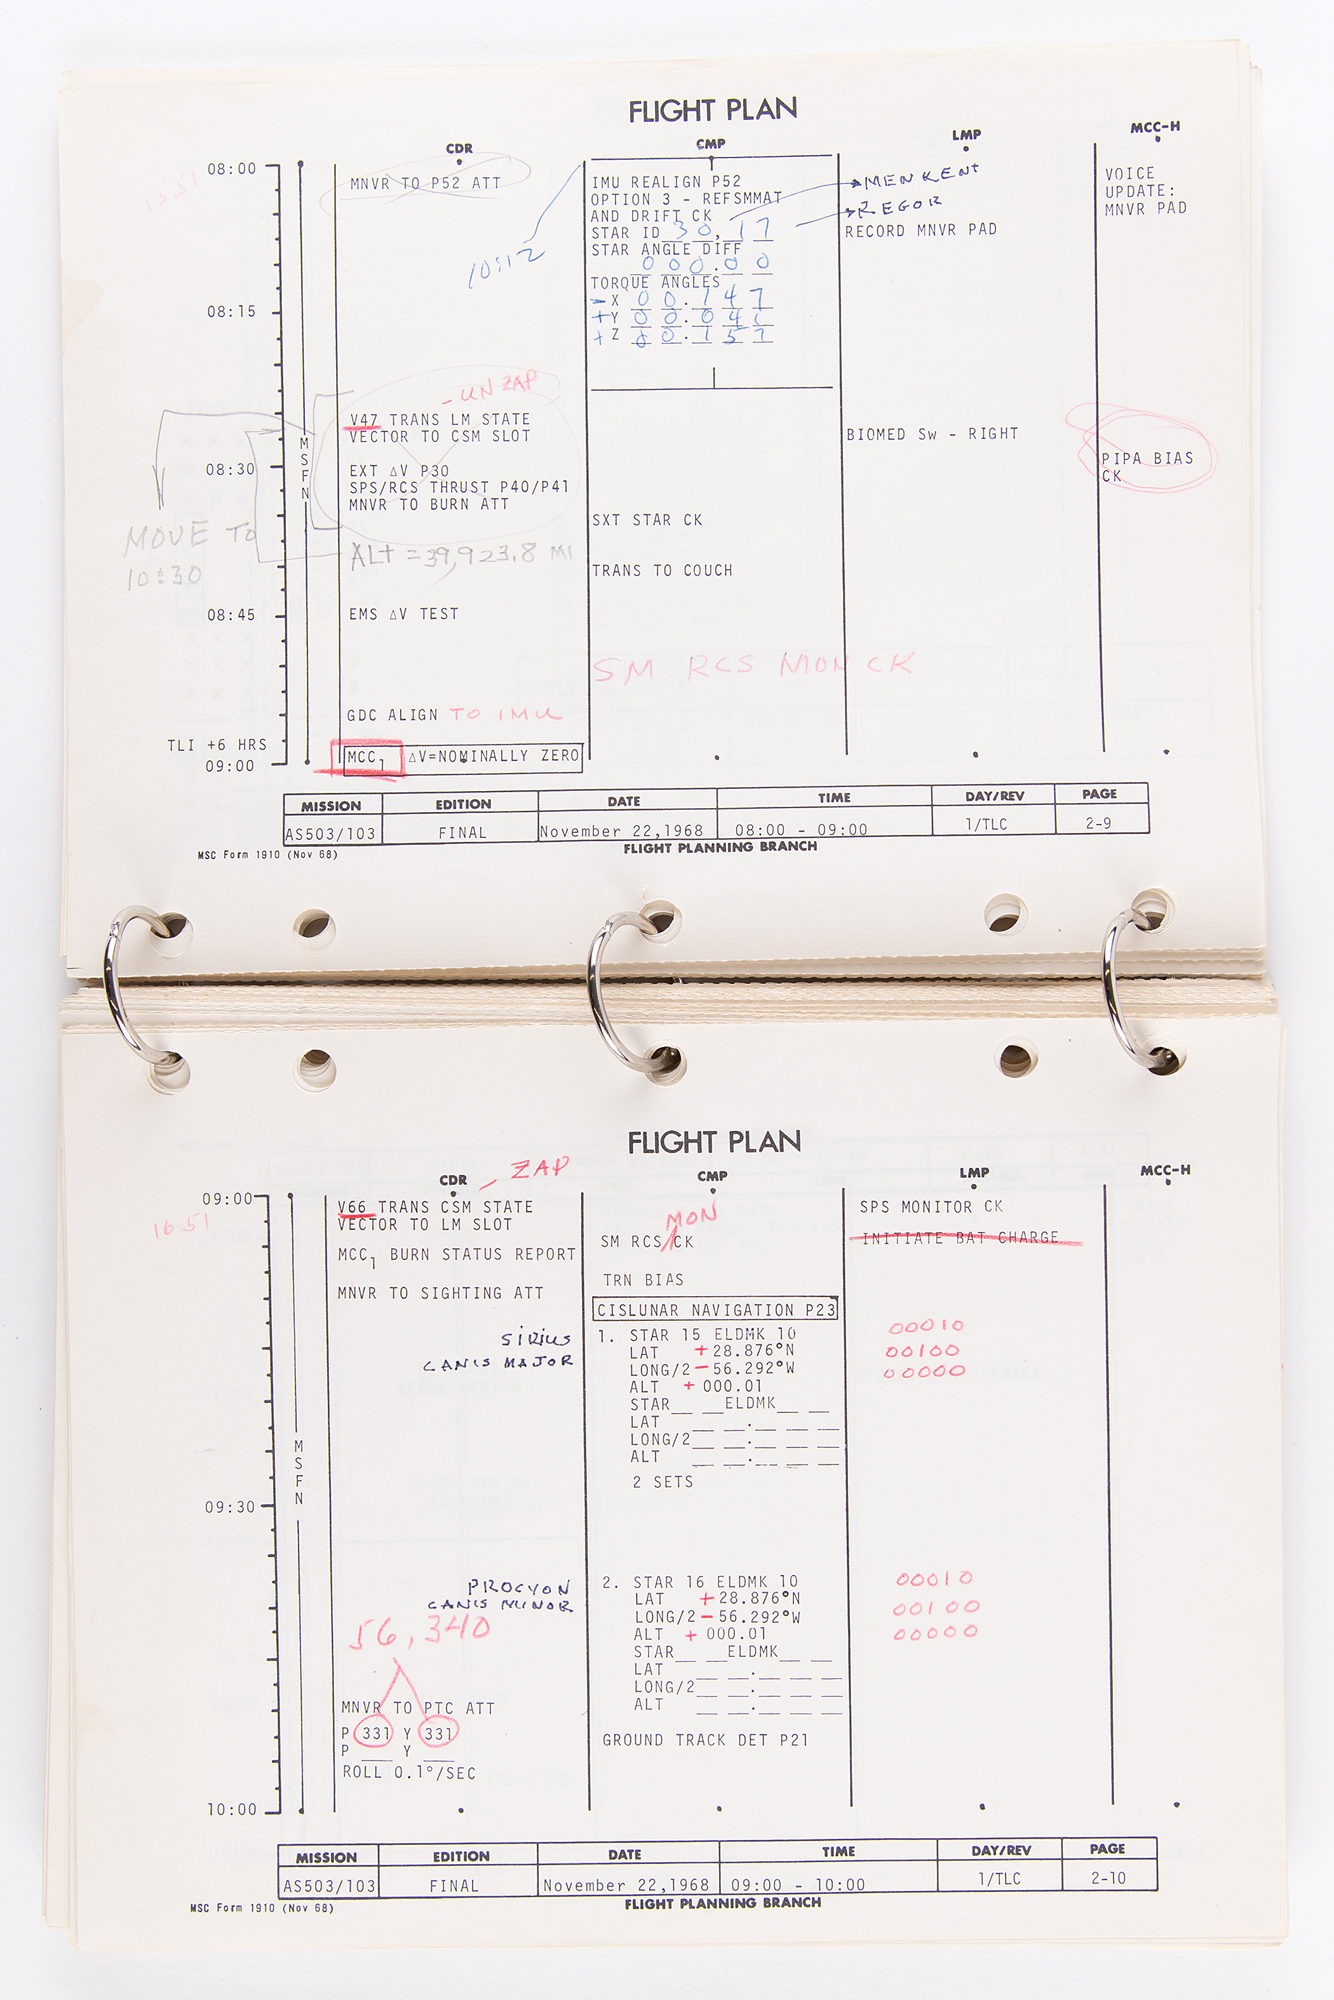 FLIGHT PLAN
CDR
CMP
LMP
MCC-H
08:00
MNVR TO P52 ATT
IMU REALIGN P52
OPTION 3 - REFSMMAT
AND DRIFT CK
STAR ID 30, 17
STAR ANGLE DIFF
000.00
TORQUE ANGLES
- X 00.147
+ Y 00.041
+ Z 00.157
10:12
MENKENT
REGOR
RECORD MNVR PAD
VOICE
UPDATE:
MNVR PAD
08:15
- UNZAP
V47 TRANS LM STATE
VECTOR TO CSM SLOT
MSFN
08:30
EXT ΔV P30
SPS/RCS THRUST P40/P41
MNVR TO BURN ATT
BIOMED Sw - RIGHT
PIPA BIAS
CK
SXT STAR CK
MOVE TO
10:30
ALT = 39,923.8 MI
TRANS TO COUCH
08:45
EMS ΔV TEST
SM RCS MON CK
GDC ALIGN TO IMU
TLI +6 HRS
09:00
MCC1 ΔV=NOMINALLY ZERO
MISSION EDITION DATE TIME DAY/REV PAGE
AS503/103 FINAL November 22,1968 08:00 - 09:00 1/TLC 2-9
MSC Form 1910 (Nov 68)
FLIGHT PLANNING BRANCH
FLIGHT PLAN
CDR
CMP
LMP
MCC-H
ZAP
09:00
1651
V66 TRANS CSM STATE
VECTOR TO LM SLOT
MCC1 BURN STATUS REPORT
MNVR TO SIGHTING ATT
MON
SM RCS CK
TRN BIAS
SPS MONITOR CK
INITIATE BAT CHARGE
CISLUNAR NAVIGATION P23
SIRIUS
CANIS MAJOR
1. STAR 15 ELDMK 10
LAT +28.876°N
LONG/2 -56.292°W
ALT +000.01
STAR__ __ELDMK__ __
LAT __ __.__ __ __
LONG/2__ __.__ __ __
ALT __ __.__ __ __
2 SETS
00010
00100
00000
MSFN
09:30
PROCYON
CANIS MINOR
2. STAR 16 ELDMK 10
LAT +28.876°N
LONG/2 -56.292°W
ALT +000.01
STAR__ __ELDMK__ __
LAT __ __.__ __ __
LONG/2__ __.__ __ __
ALT __ __.__ __ __
00010
00100
00000
56,340
MNVR TO PTC ATT
P 331 Y 331
P ___ Y ___
ROLL 0.1°/SEC
GROUND TRACK DET P21
10:00
MISSION EDITION DATE TIME DAY/REV PAGE
AS503/103 FINAL November 22,1968 09:00 - 10:00 1/TLC 2-10
MSC Form 1910 (Nov 68)
FLIGHT PLANNING BRANCH